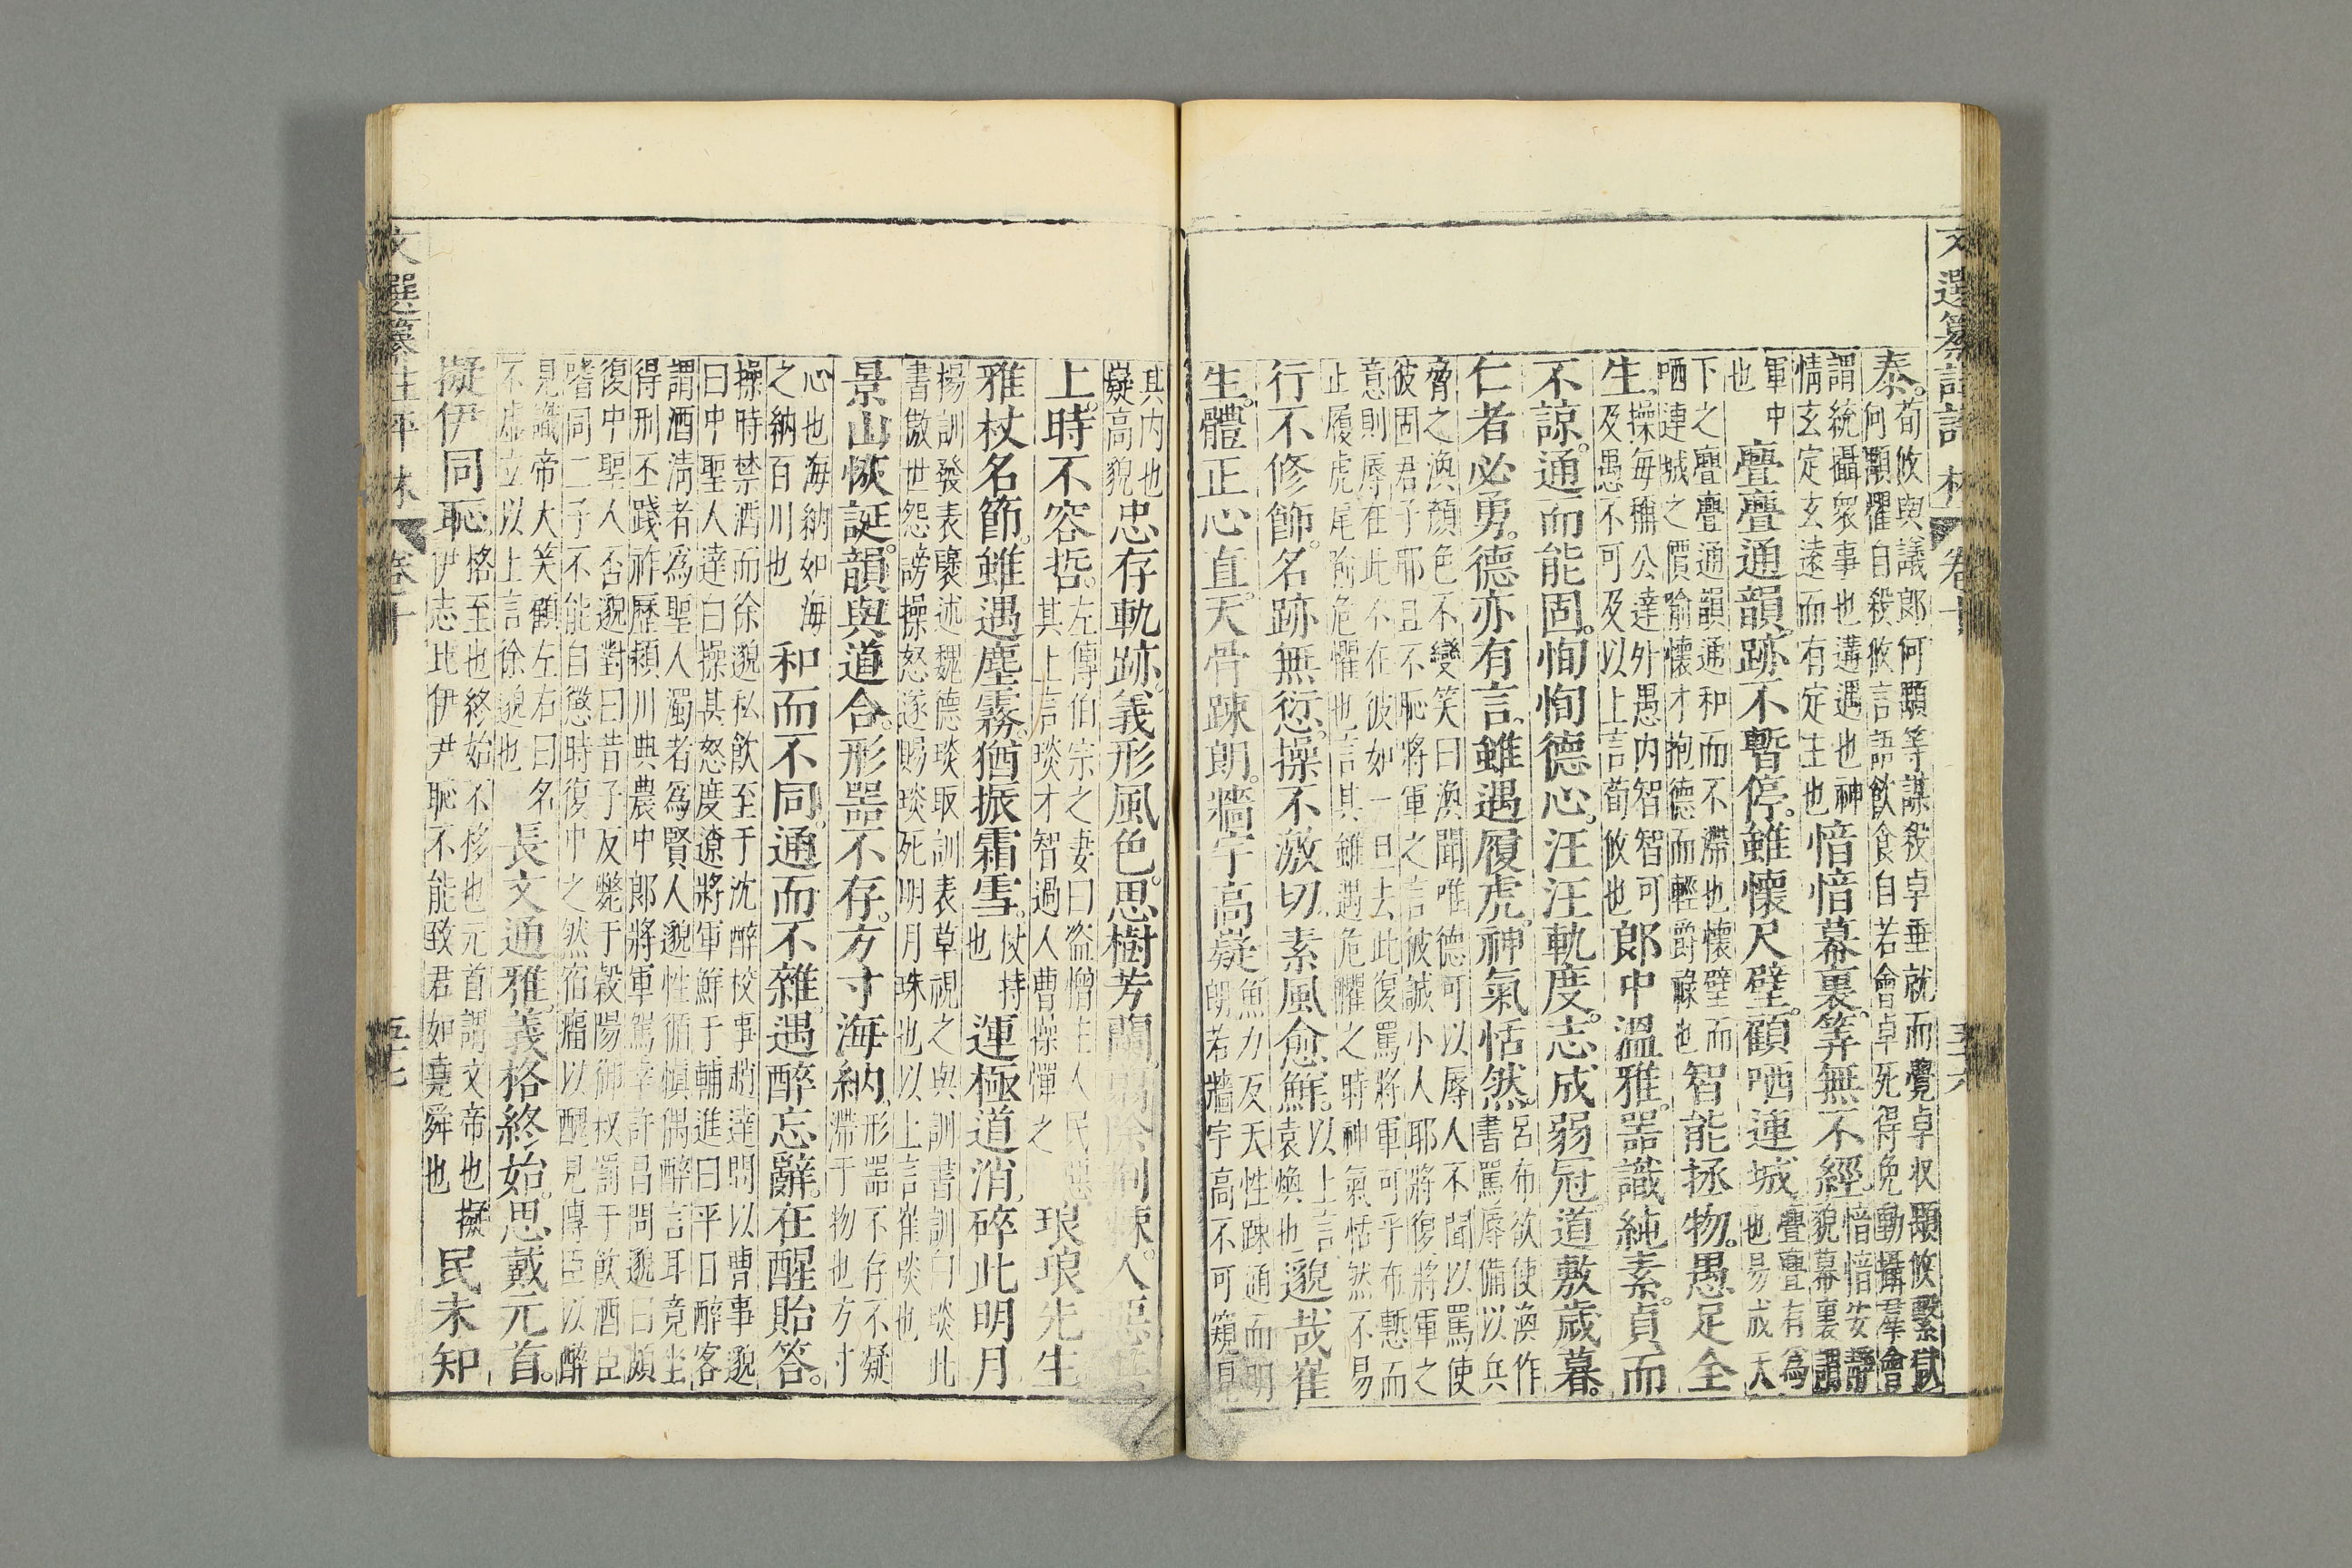 泰荀攸與議郎何顒等謀殺卓垂就而覺卓收顒攸繫獄
何顒懼自殺攸言語飲食自若會卓死得免動攝羣會
謂統攝衆事也遘遇也神愔愔幕裏筭無不經愔愔安靜
情玄定玄遠而有定主也貌幕裏謂
軍中亹亹通韻跡不暫停雖懷尺璧顧哂連城亹亹有為
也也易成大
下之亹亹通韻通和而不滯也懷璧而智能拯物愚足全
哂連城之價喻懷才抱德而輕爵祿也
生操每稱公達外愚内智智可郎中溫雅器識純素貞而
及愚不可及以上言荀攸也
不諒通而能固恂恂德心汪汪軌度志成弱冠道敷歲暮
仁者必勇德亦有言雖遇履虎神氣恬然呂布欲使渙作
書罵辱備以兵
脅之渙顏色不變笑曰渙聞唯德可以辱人不聞以罵使
彼固君子耶且不恥將軍之言彼誠小人耶將復將軍之
意則辱在此不在彼如一旦去此復罵將軍可乎布慙而
止履虎尾喻危懼也言其雖遇危懼之時神氣恬然不易
行不修飾名跡無愆操不激切素風愈鮮以上言邈哉崔
袁煥也
生體正心直天骨踈朗牆宇高嶷魚力反天性踈通而明
朗若牆宇高不可窺見
其内也忠存軌跡義形風色思樹芳蘭
嶷高貌
上時不容哲左傳伯宗之妻曰盗憎主人民惡琅琅先生
其上言琰才智過人曹操憚之
雅杖名節雖遇塵霧猶振霜雪仗持運極道消碎此明月
也
楊訓發表襃述魏德琰取訓表草視之與訓書訓曰琰此
書傲世怨謗操怒遂賜琰死明月珠也以上言崔琰也
景山恢誕韻與道合形器不存方寸海納形器不存不凝
滯于物也方寸
心也海納如海和而不同通而不雜遇醉忘辭在醒貽答
之納百川也
操時禁酒而徐邈私飲至于沈醉校事趙達問以曹事邈
曰中聖人達白操其怒度遼將軍鮮于輔進曰平日醉客
謂酒淸者為聖人濁者為賢人邈性循愼偶醉言耳竟坐
得刑丕踐祚歷頴川典農中郎將軍駕幸許昌問邈曰頗
復中聖人否邈對曰昔子反斃于穀陽御叔罰于飲酒臣
嗜同二子不能自懲時復中之然宿瘤以醜見傳臣以醉
見識帝大笑顧左右曰名長文通雅義格終始思戴元首
不虛立以上言徐邈也
擬伊同恥格至也終始不移也元首謂文帝也擬民未知
伊志比伊尹恥不能致君如堯舜也